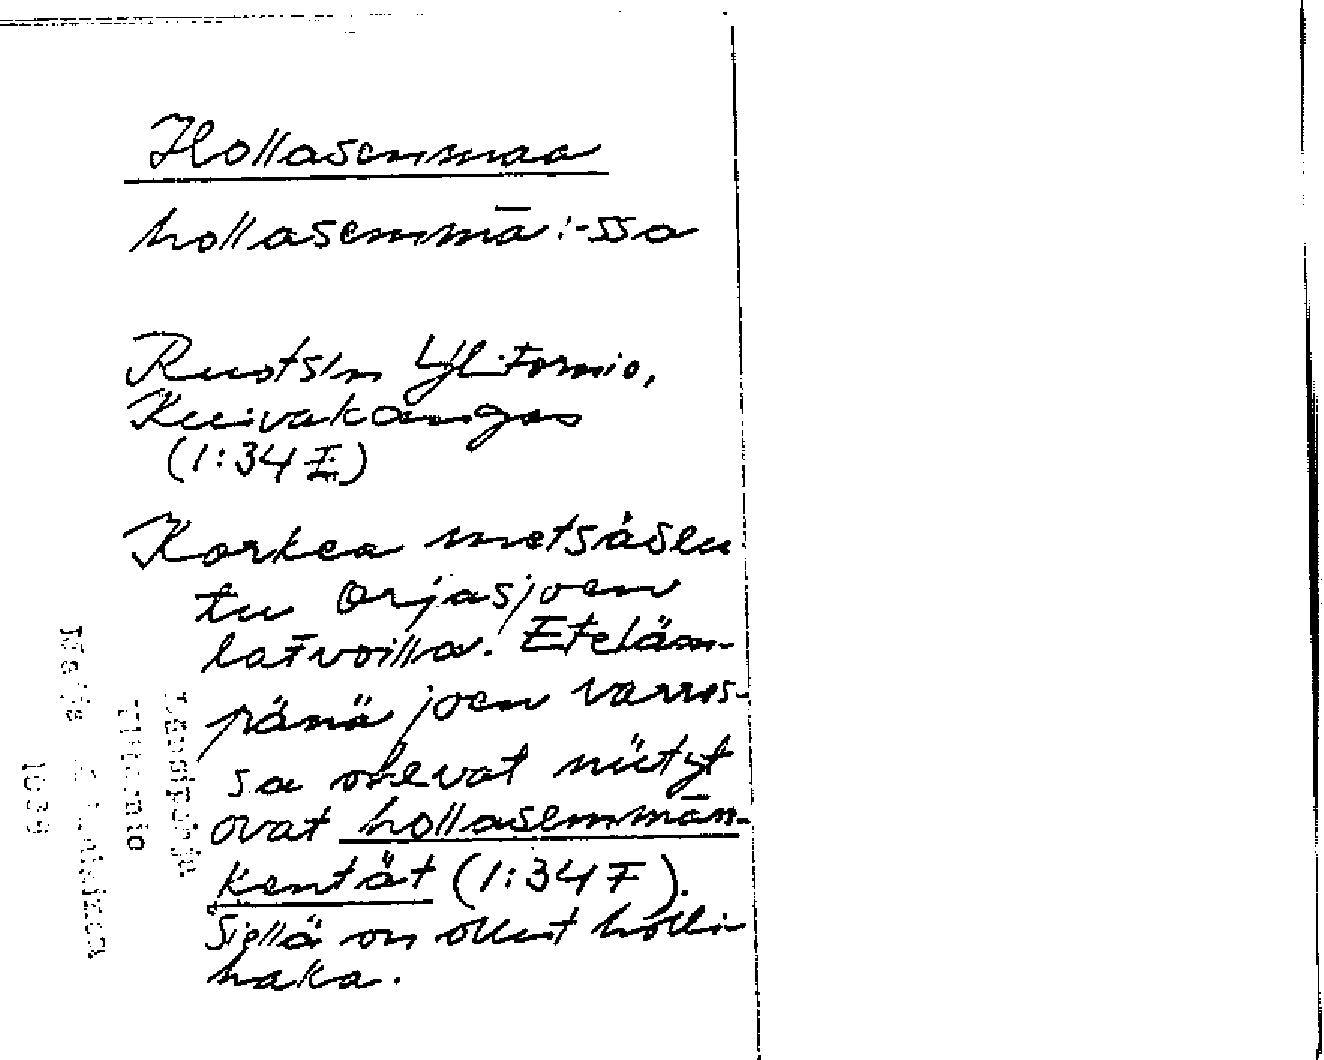 Hollasenmaa
hollasemmā:-ssa
Ruotsin Yli-Tornio,
Kuivakangas
(1:34 E)
Korkea metsäseu
tu Orjasjoen
latvoilla. Eteläm-
pänä joen varres-
sa olevat niityt
ovat hollasemmān-
kentät (1:34 F).
Siellä on ollut holli-
haka.
Länsipohja
Ylitornio